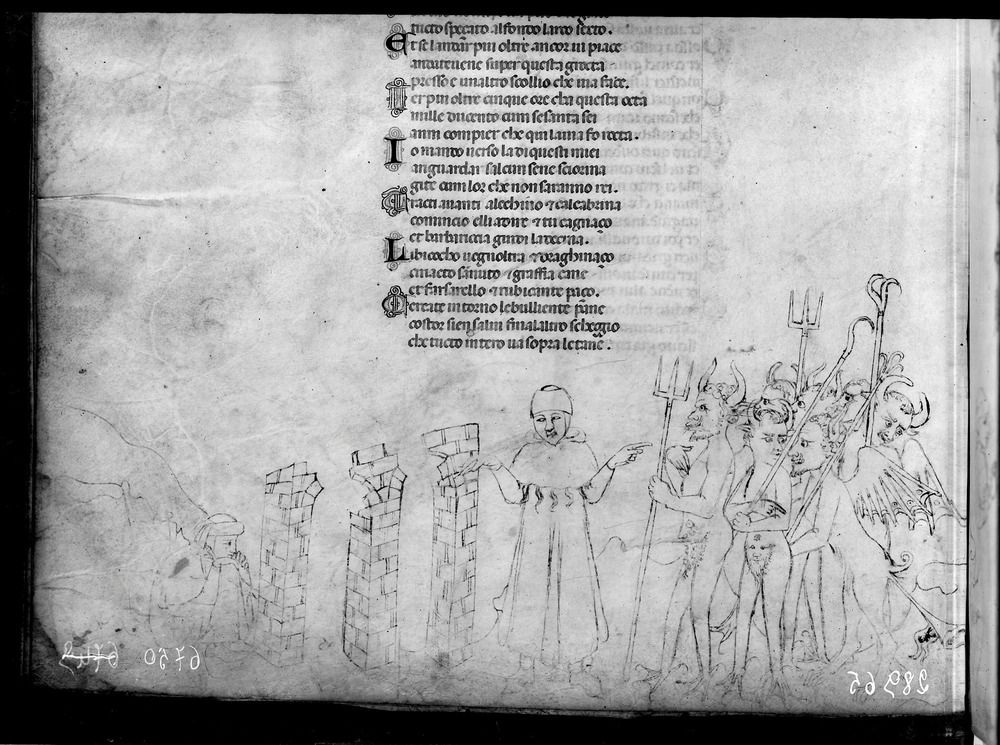 tucto speçato al fondo larco sexto.
Et se landar piu oltre ancor ui piace
andateuene super questa grocta
presso e unaltro scollio che uia face.
Ier piu oltre cinque ore cha questa octa
mille ducento cum sesanta sei
anni compier che qui la uia fo rocta.
Io mando uerso la di questi miei
a riguardar salcun sene sciorina
gite cum lor che non saranno rei.
Tracti auanti alechino & calcabrina
comincio elli a dire & tu cagnaço
et barbariccia guidi la decina.
Libicocho uegna oltra & draghinaço
ciriacto sanuto & graffia cane
et farfarello & rubicante paço.
Cercate intorno le bulliente pane
costor sien salui fin alaltro scheggio
che tucto intero ua sopra le tane.
6750
28265